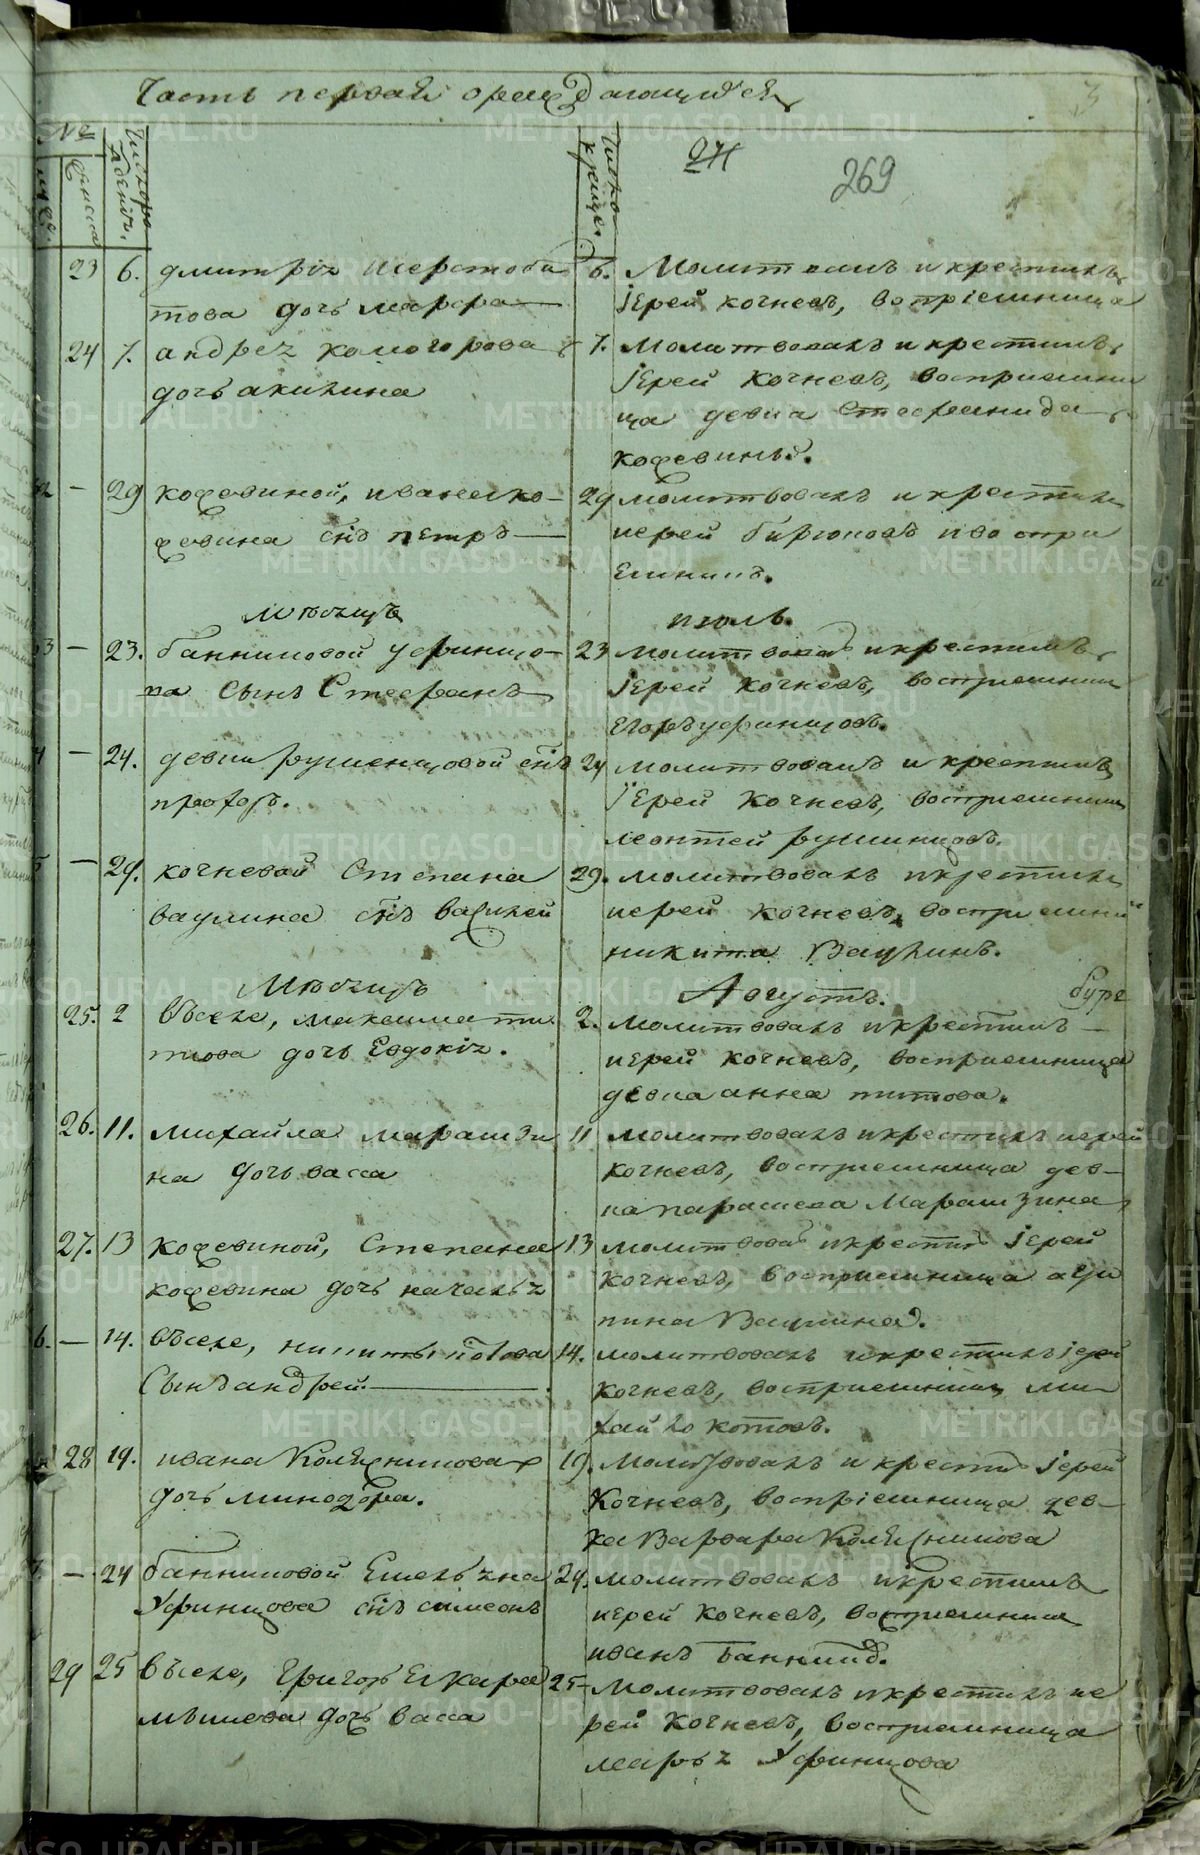 Часть первая о раждающихся
3
№
Число рожденiя.
Число креще.
женска
24
269
23 6. дмитрiя шерстоби
това дочь марфа
6. Молитвовалъ и крестилъ
iерей кочневъ, воспрiемница
24 7. андрея комогорова
дочь акилина
7. Молитвовалъ и крестилъ
iерей Кочневъ, восприемни
ца девка Стефанида
кожевины.
— 29 кожевиной, ивана ко-
жевина снъ петръ
29 молитвовалъ и крестилъ
иерей бирюковъ и во спри
емникъ.
Мѣсяцъ
июль.
— 23. банниковой уфинцо-
ва Сынъ Стефанъ
23 молитвовалъ и крестилъ
iерей Кочневъ, восприемник
Егоръ уфинцовъ.
— 24. девки румянцовой снъ
24 молитвовалъ и крестилъ
iерей Кочневъ, восприемник
леонтей румянцовъ.
— 29. кочневой Степана
ваулина снъ василей
29. молитвовалъ и крестилъ
иерей кочневъ, восприемник
никита Ваулинъ.
Мѣсяцъ
Августъ.
25. 2 Въселе, максима ти
това дочь Евдокiя.
2. молитвовалъ и крестилъ
иерей кочневъ, восприемница
девка анна титова.
26. 11. михайла марамзи
на дочь васса
11 молитвовалъ и крестилъ иерей
кочневъ, восприемница дев-
ка парасковa Марамзина
27. 13 Кожевиной, Степана
кожевина дочь наталья
13 молитвовал и крестил iерей
кочневъ, восприемница агри
пина Ваулина.
6. — 14. Въселе, никиты котова
Сынъ андрей.
14. молитвовалъ и крестилъ iерей
кочневъ, восприемник ми
хайло котовъ.
28 19. ивана Колясникова
дочь минодора.
19. Молитвовалъ и крестил iерей
Кочневъ, воспрiемница дев-
ка Варвара Колясникова
— 24 банниковой Емельяна
Уфинцова снъ симеонъ
24. молитвовалъ и крестилъ
иерей кочневъ, восприемник
иванъ банных.
29 25 Въселе, Григорья Кара
мышева дочь васса
25 молитвовалъ и крестилъ ие
рей Кочневъ, восприемница
марья Уфинцова
METRIKI.GASO-URAL.RU